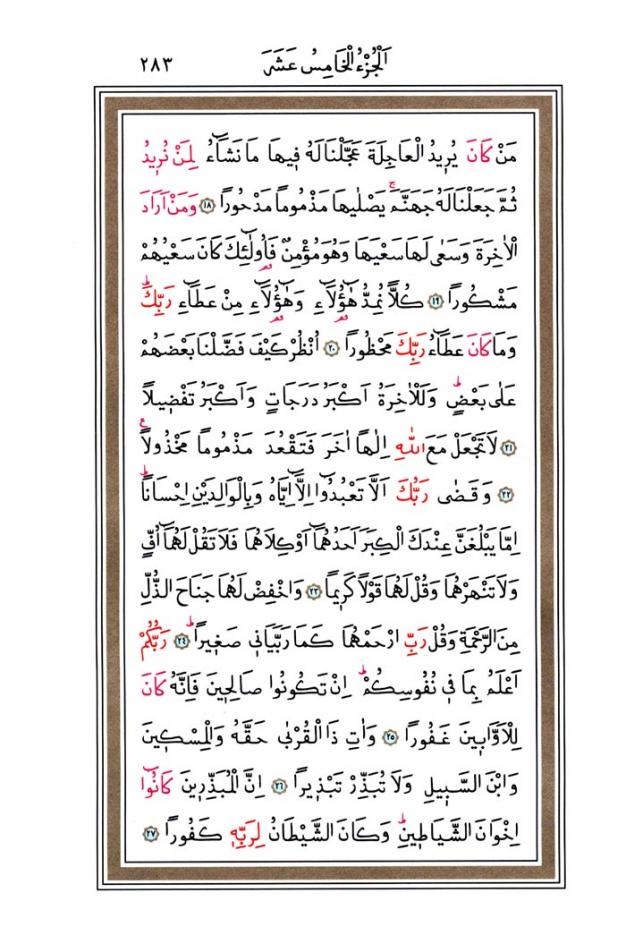 اَلْجُزْءُ الْخَامِسُ عَشَرَ ٢٨٣
مَنْ كَانَ يُرٖيدُ الْعَاجِلَةَ عَجَّلْنَا لَهُ فٖيهَا مَا نَشَٓاءُ لِمَنْ نُرٖيدُ
ثُمَّ جَعَلْنَا لَهُ جَهَنَّمَۚ يَصْلٰيهَا مَذْمُومًا مَدْحُورًا ﴿١٨﴾ وَمَنْ اَرَادَ
الْاٰخِرَةَ وَسَعٰى لَهَا سَعْيَهَا وَهُوَ مُؤْمِنٌ فَاُو۬لٰٓئِكَ كَانَ سَعْيُهُمْ
مَشْكُورًا ﴿١٩﴾ كُلًّا نُمِدُّ هٰٓؤُ۬لَٓاءِ وَهٰٓؤُ۬لَٓاءِ مِنْ عَطَٓاءِ رَبِّكَۜ
وَمَا كَانَ عَطَٓاءُ رَبِّكَ مَحْظُورًا ﴿٢٠﴾ اُنْظُرْ كَيْفَ فَضَّلْنَا بَعْضَهُمْ
عَلٰى بَعْضٍۜ وَلَلْاٰخِرَةُ اَكْبَرُ دَرَجَاتٍ وَاَكْبَرُ تَفْضٖيلًا
﴿٢١﴾ لَا تَجْعَلْ مَعَ اللّٰهِ اِلٰهًا اٰخَرَ فَتَقْعُدَ مَذْمُومًا مَخْذُولًاࣖ
﴿٢٢﴾ وَقَضٰى رَبُّكَ اَلَّا تَعْبُدُٓوا اِلَّٓا اِيَّاهُ وَبِالْوَالِدَيْنِ اِحْسَانًاۜ
اِمَّا يَبْلُغَنَّ عِنْدَكَ الْكِبَرَ اَحَدُهُمَٓا اَوْ كِلَاهُمَا فَلَا تَقُلْ لَهُمَٓا اُفٍّ
وَلَا تَنْهَرْهُمَا وَقُلْ لَهُمَا قَوْلًا كَرٖيمًا ﴿٢٣﴾ وَاخْفِضْ لَهُمَا جَنَاحَ الذُّلِّ
مِنَ الرَّحْمَةِ وَقُلْ رَبِّ ارْحَمْهُمَا كَمَا رَبَّيَانٖى صَغٖيرًاۜ ﴿٢٤﴾ رَبُّكُمْ
اَعْلَمُ بِمَا فٖى نُفُوسِكُمْۜ اِنْ تَكُونُوا صَالِحٖينَ فَاِنَّهُ كَانَ
لِلْاَوَّابٖينَ غَفُورًا ﴿٢٥﴾ وَاٰتِ ذَا الْقُرْبٰى حَقَّهُ وَالْمِسْكٖينَ
وَابْنَ السَّبٖيلِ وَلَا تُبَذِّرْ تَبْذٖيرًا ﴿٢٦﴾ اِنَّ الْمُبَذِّرٖينَ كَانُٓوا
اِخْوَانَ الشَّيَاطٖينِۜ وَكَانَ الشَّيْطَانُ لِرَبِّهٖ كَفُورًا ﴿٢٧﴾